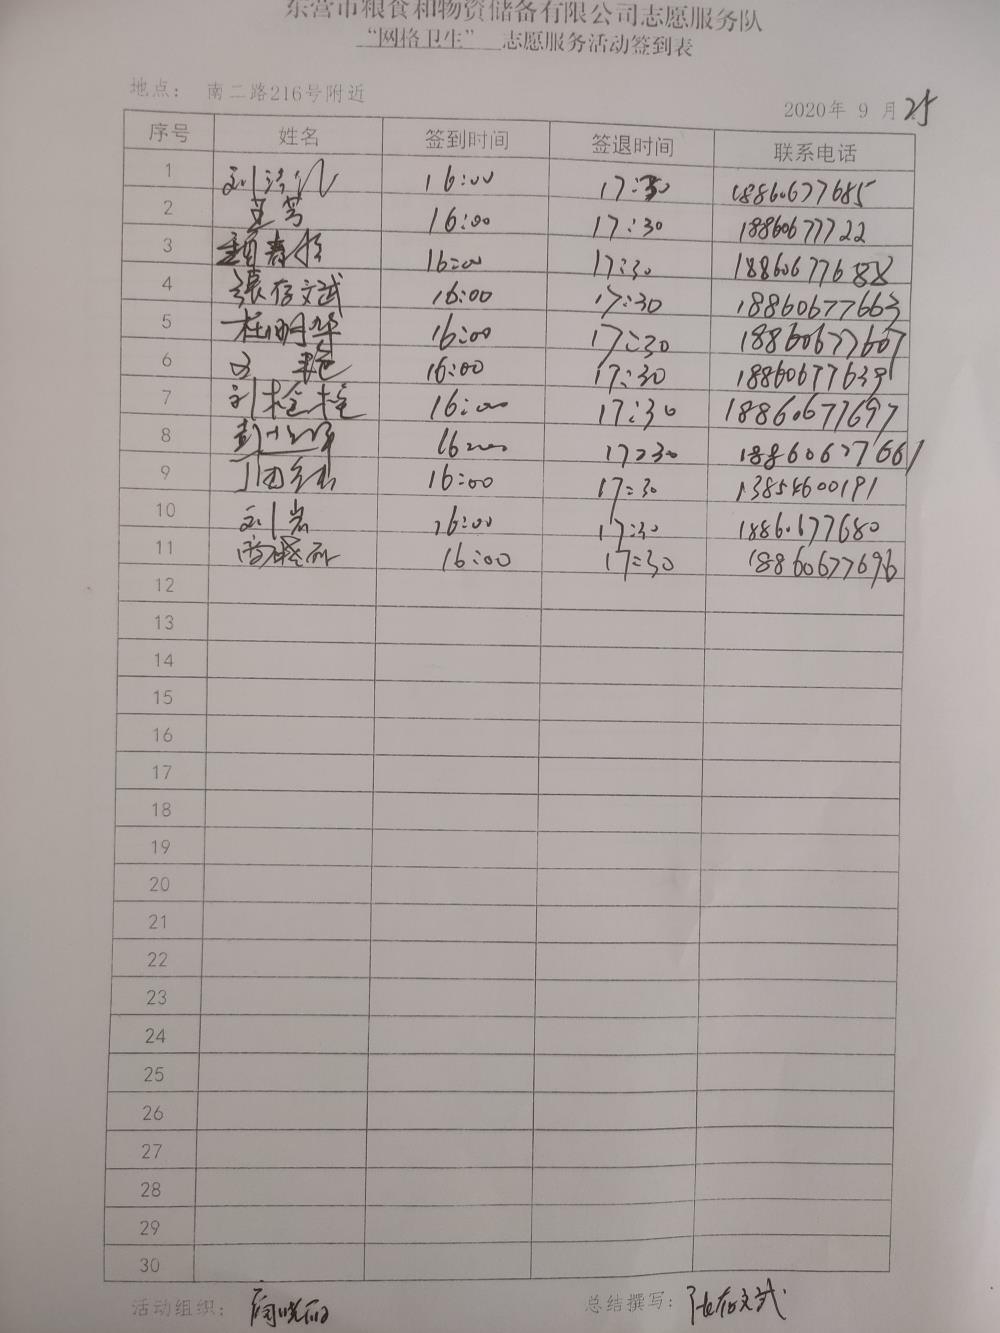 东营市粮食和物资储备有限公司志愿服务队
“网格卫生” 志愿服务活动签到表
地点： 南二路216号附近
2020年 9 月 25
序号 姓名 签到时间 签退时间 联系电话
1 16:00 17:30 18860677685
2 16:00 17:30 18860677722
3 16:00 17:30 18860677688
4 张存文武 16:00 17:30 18860677663
5 杜明华 16:00 17:30 18860677667
6 16:00 17:30 18860677639
7 刘栓栓 16:00 17:30 18860677697
8 16:00 17:30 18860627661
9 16:00 17:30 13854600191
10 刘岩 16:00 17:30 18860677680
11 16:00 17:30 18860677696
12
13
14
15
16
17
18
19
20
21
22
23
24
25
26
27
28
29
30
活动组织： 总结撰写： 张存文武